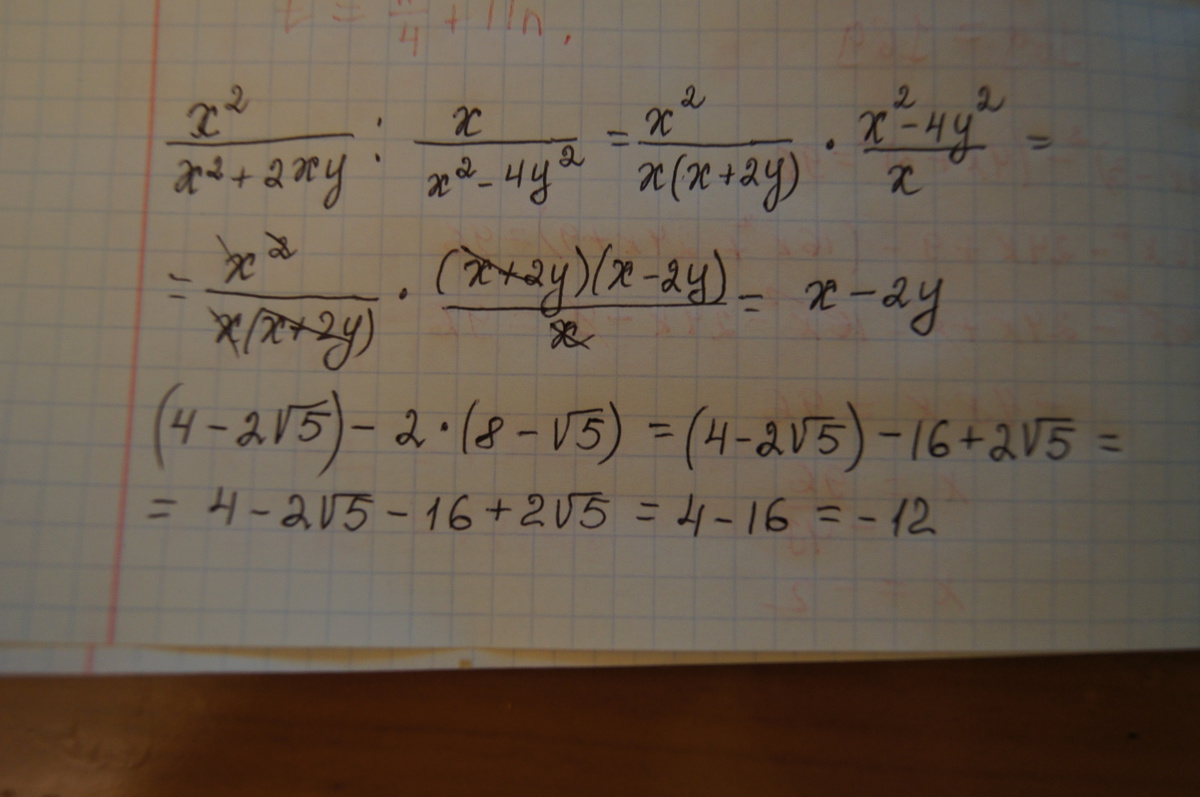 x²/(x² + 2xy) : x/(x² - 4y²) = x²/(x(x + 2y)) · (x² - 4y²)/x =
= x²/(x(x + 2y)) · ((x + 2y)(x - 2y))/x = x - 2y
(4 - 2√5) - 2 · (8 - √5) = (4 - 2√5) - 16 + 2√5 =
= 4 - 2√5 - 16 + 2√5 = 4 - 16 = -12